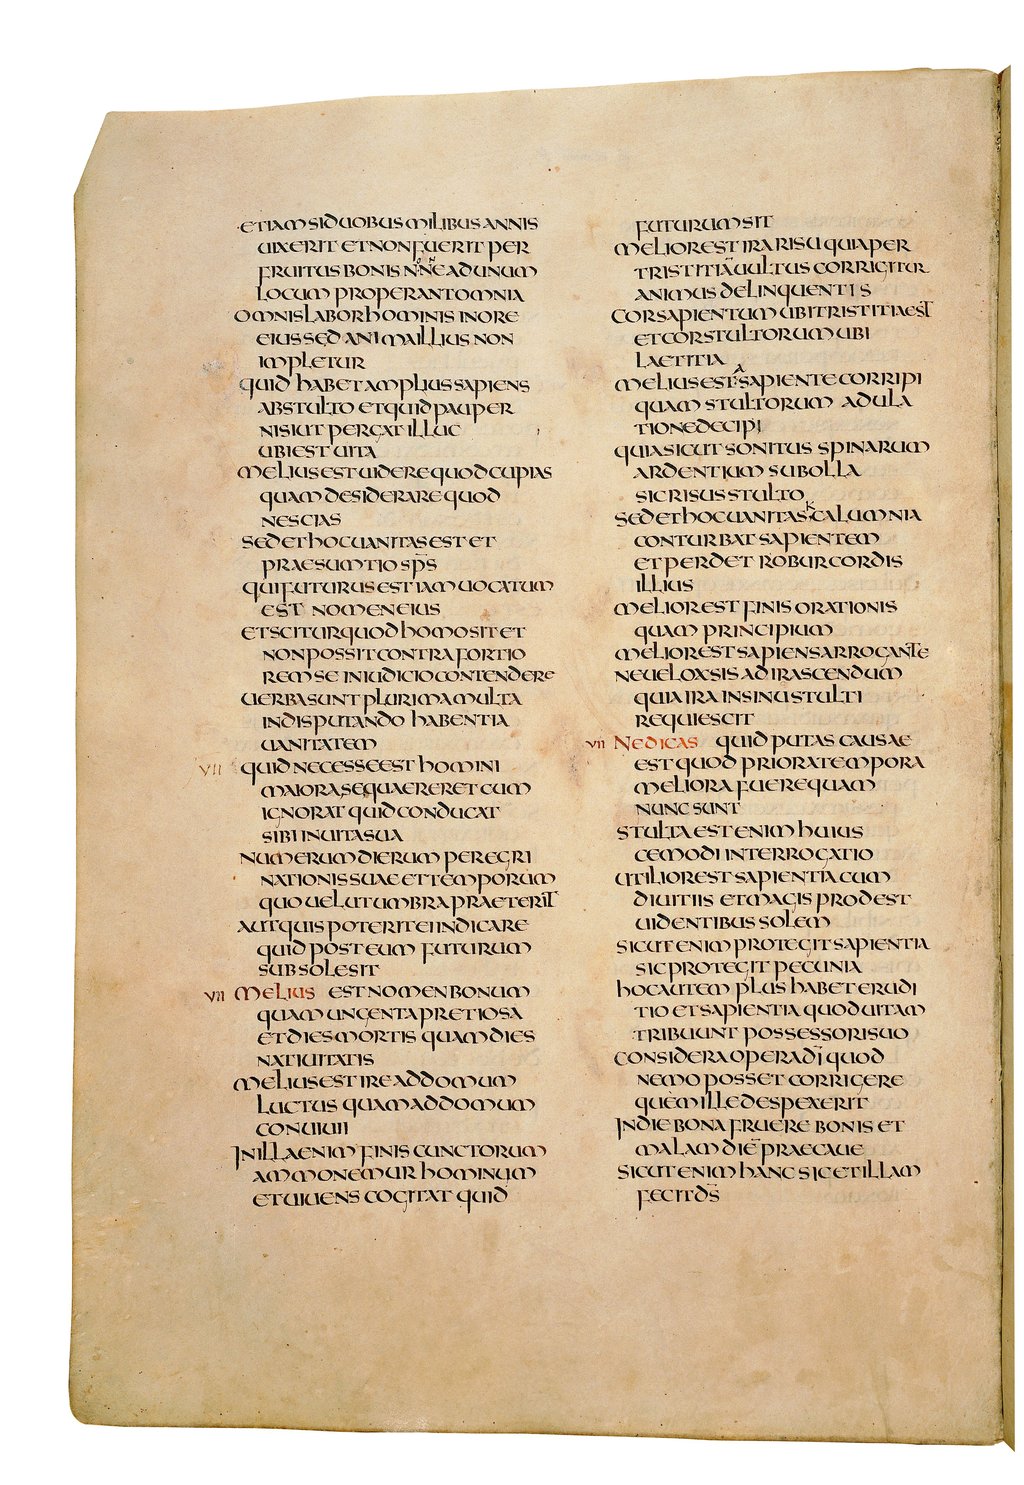 ETIAM SI DUOBUS MILIBUS ANNIS
UIXERIT ET NON FUERIT PER
FRUITUS BONIS N̅N̅E AD UNUM
LOCUM PROPERANT OMNIA
OMNIS LABOR HOMINIS IN ORE
EIUS SED ANIMA ILLIUS NON
IMPLETUR
QUID HABET AMPLIUS SAPIENS
AB STULTO ET QUID PAUPER
NISI UT PERGAT ILLUC
UBI EST UITA
MELIUS EST UIDERE QUOD CUPIAS
QUAM DESIDERARE QUOD
NESCIAS
SED ET HOC UANITAS EST ET
PRAESUMTIO SP̅S
QUI FUTURUS EST IAM UOCATUM
EST NOMEN EIUS
ET SCITUR QUOD HOMO SIT ET
NON POSSIT CONTRA FORTIO
REM SE IN IUDICIO CONTENDERE
UERBA SUNT PLURIMA MULTA
IN DISPUTANDO HABENTIA
UANITATEM
VII QUID NECESSE EST HOMINI
MAIORA SE QUAERERE CUM
IGNORAT QUID CONDUCAT
SIBI IN UITA SUA
NUMERUM DIERUM PEREGRI
NATIONIS SUAE ET TEMPORUM
QUO UELUT UMBRA PRAETERIT
AUT QUIS POTERIT EI INDICARE
QUID POST EUM FUTURUM
SUB SOLE SIT
VII MELIUS EST NOMEN BONUM
QUAM UNGENTA PRETIOSA
ET DIES MORTIS QUAM DIES
NATIUITATIS
MELIUS EST IRE AD DOMUM
LUCTUS QUAM AD DOMUM
CONUIUII
IN ILLA ENIM FINIS CUNCTORUM
AMMONEMUR HOMINUM
ET UIUENS COGITAT QUID
FUTURUM SIT
MELIOR EST IRA RISU QUIA PER
TRISTITIA̅ UULTUS CORRIGITUR
ANIMUS DELINQUENTIS
COR SAPIENTUM UBI TRISTITIA EST
ET COR STULTORUM UBI
LAETITIA
MELIUS EST A SAPIENTE CORRIPI
QUAM STULTORUM ADULA
TIONE DECIPI
QUIA SICUT SONITUS SPINARUM
ARDENTIUM SUB OLLA
SIC RISUS STULTO
SED ET HOC UANITAS KALUMNIA
CONTURBAT SAPIENTEM
ET PERDET ROBUR CORDIS
ILLIUS
MELIOR EST FINIS ORATIONIS
QUAM PRINCIPIUM
MELIOR EST SAPIENS ARROGANTE
NE UELOX SIS AD IRASCENDUM
QUIA IRA IN SINU STULTI
REQUIESCIT
VII NE DICAS QUID PUTAS CAUSAE
EST QUOD PRIORA TEMPORA
MELIORA FUERE QUAM
NUNC SUNT
STULTA EST ENIM HUIUS
CEMODI INTERROGATIO
UTILIOR EST SAPIENTIA CUM
DIUITIIS ET MAGIS PRODEST
UIDENTIBUS SOLEM
SICUT ENIM PROTEGIT SAPIENTIA
SIC PROTEGIT PECUNIA
HOC AUTEM PLUS HABET ERUDI
TIO ET SAPIENTIA QUOD UITAM
TRIBUUNT POSSESSORI SUO
CONSIDERA OPERA D̅I QUOD
NEMO POSSET CORRIGERE
QUEM ILLE DESPEXERIT
IN DIE BONA FRUERE BONIS ET
MALAM DIE̅ PRAECAUE
SICUT ENIM HANC SIC ET ILLAM
FECIT D̅S